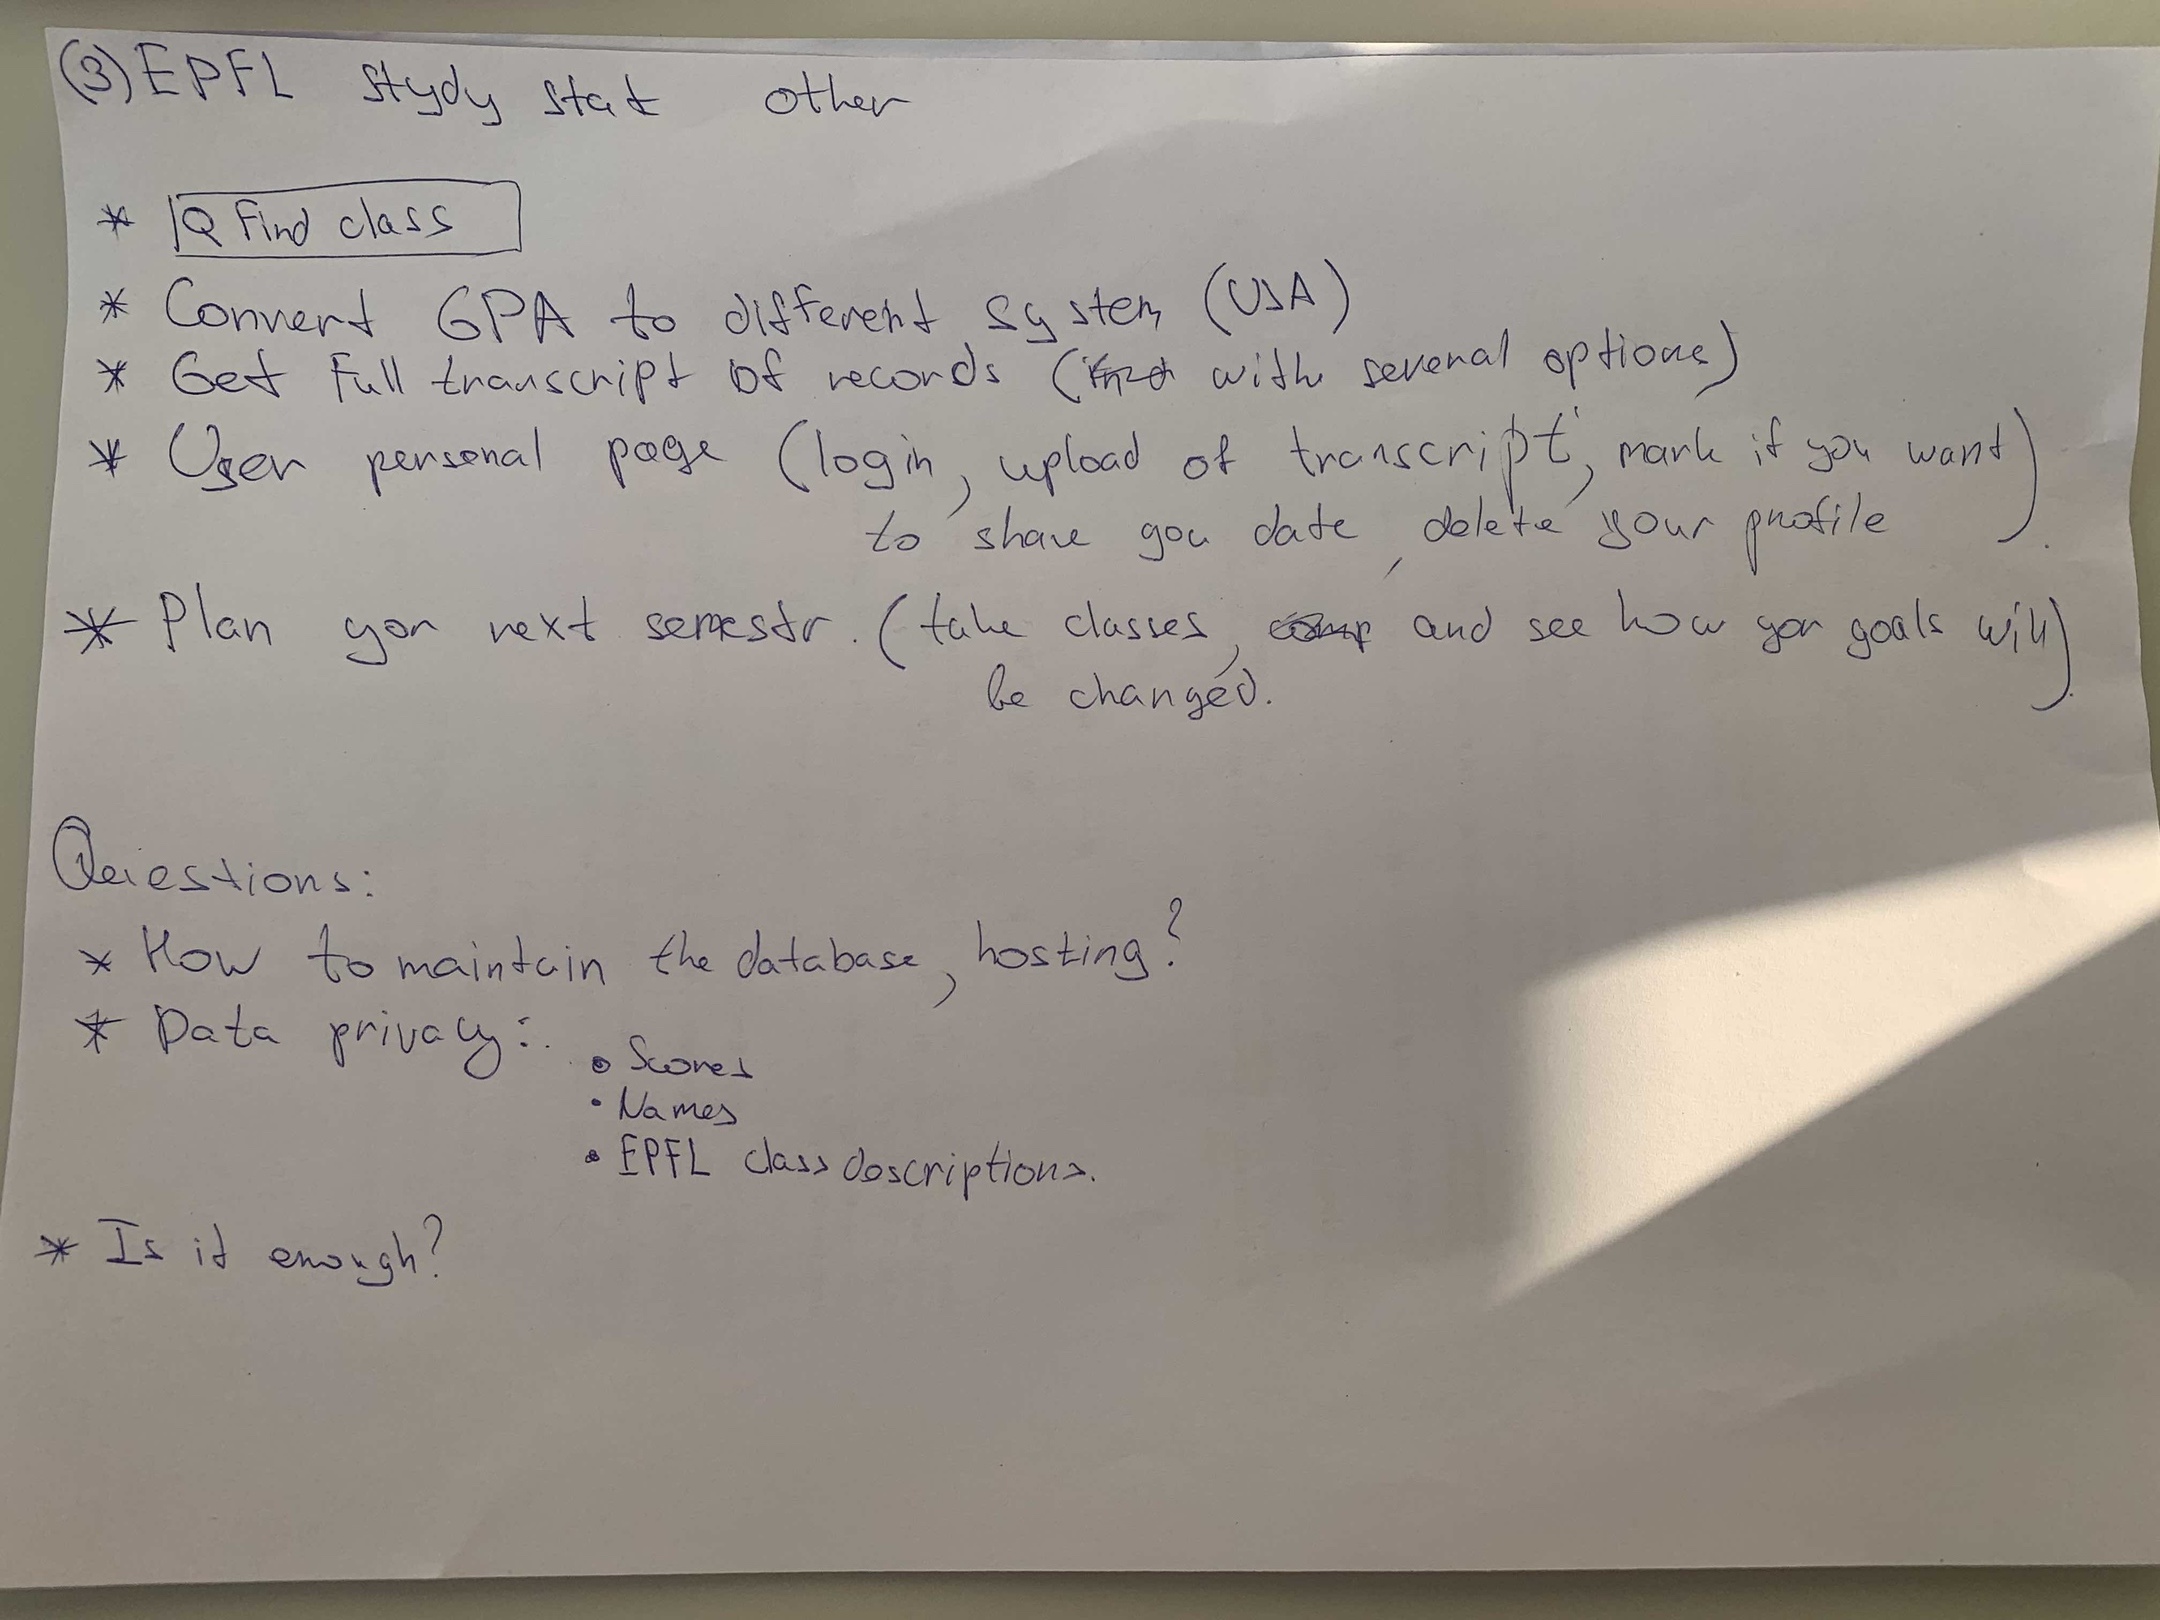 (3) EPFL Stydy stat other
* Q Find class
* Convert GPA to different system (USA)
* Get Full transcript of records ( with several options)
* User personal page (login, upload of transcript, mark if you want
to share you date, delete your profile)
* Plan you next semestr. (take classes, and see how you goals will
be changed.)
Questions:
* How to maintain the database, hosting?
* Data privacy:
• Scores
• Names
• EPFL class descriptions.
* Is it enough?